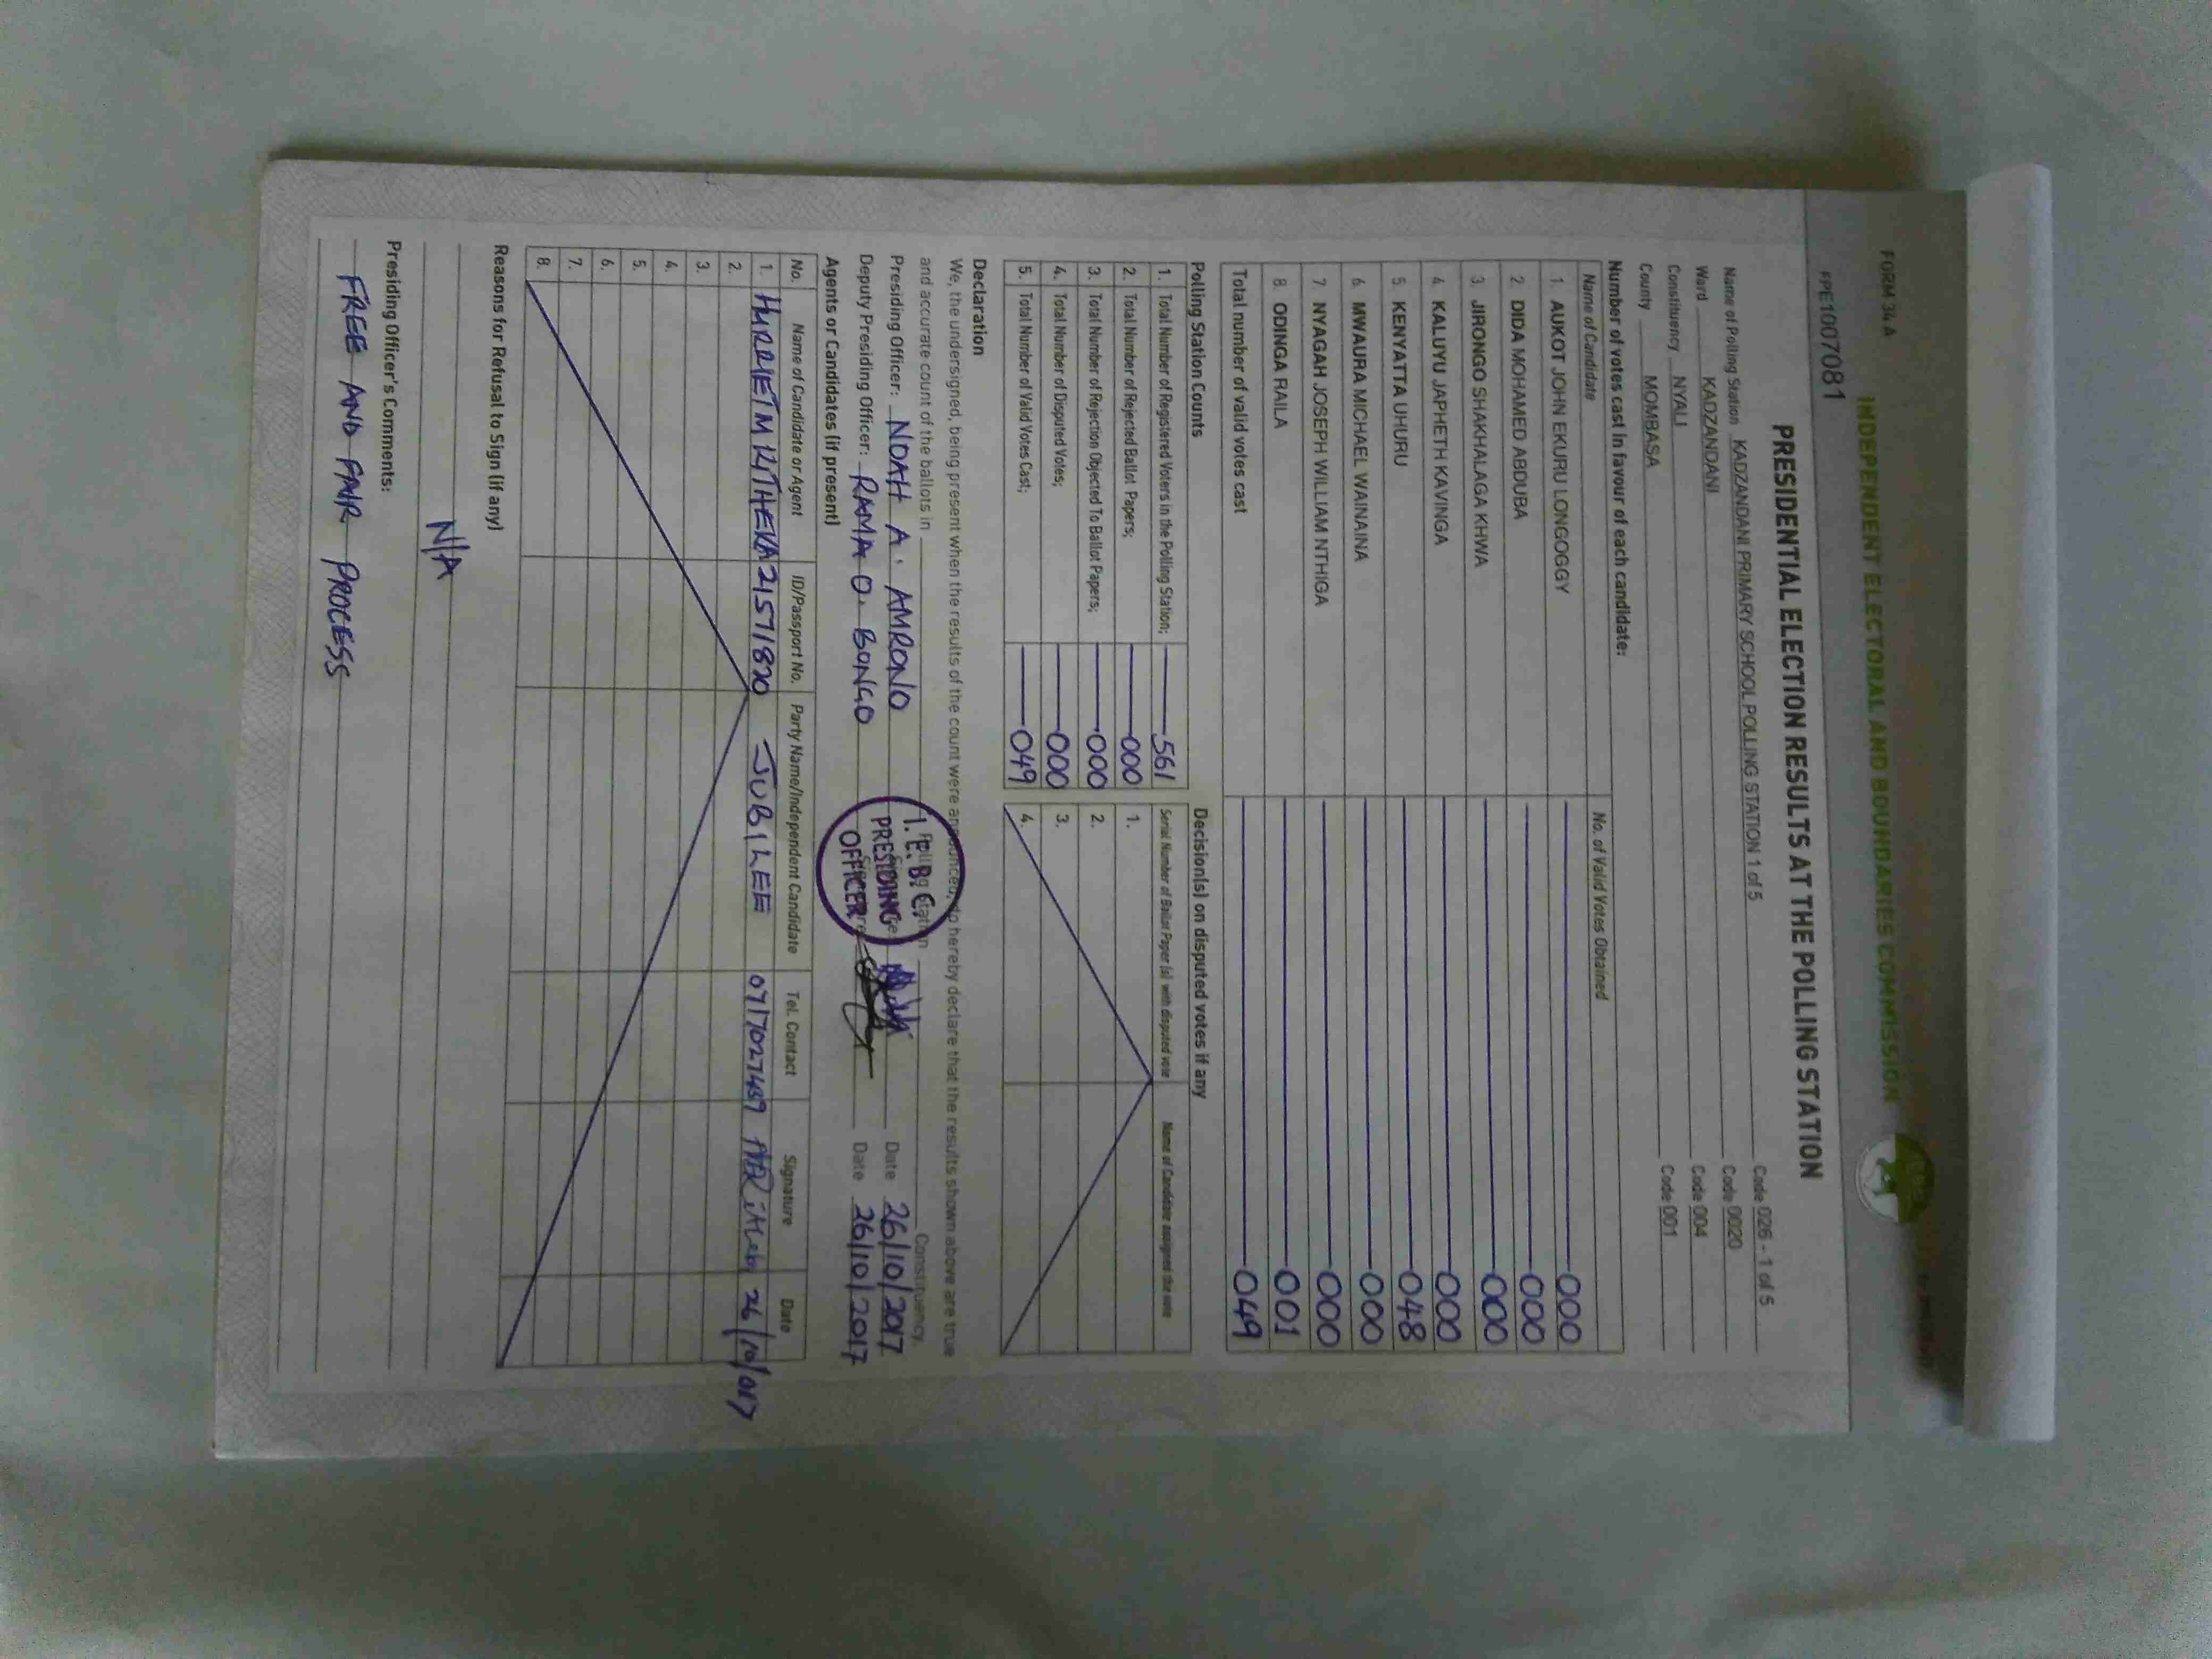 FORM 34 A
INDEPENDENT ELECTORAL AND BOUNDARIES COMMISSION
PPE1007081
PRESIDENTIAL ELECTION RESULTS AT THE POLLING STATION
Name of Polling Station KADZANDANI PRIMARY SCHOOL POLLING STATION 1 of 5 Code 026 - 1 of 5
Ward KADZANDANI Code 0020
Constituency NYALI Code 004
County MOMBASA Code 001
Number of votes cast in favour of each candidate:
Name of Candidate No. of Valid Votes Obtained
1 AUKOT JOHN EKURU LONGOGGY 000
2 DIDA MOHAMED ABDUBA 000
3. JIRONGO SHAKHALAGA KHWA 000
4 KALUYU JAPHETH KAVINGA 000
5. KENYATTA UHURU 048
6 MWAURA MICHAEL WAINAINA 000
7 NYAGAH JOSEPH WILLIAM NTHIGA 000
8. ODINGA RAILA 001
Total number of valid votes cast 049
Polling Station Counts
1. Total Number of Registered Voters in the Polling Station; 561
2. Total Number of Rejected Ballot Papers; 000
3. Total Number of Rejection Objected To Ballot Papers; 000
4. Total Number of Disputed Votes; 000
5. Total Number of Valid Votes Cast; 049
Decision(s) on disputed votes if any
Serial Number of Ballot Paper (s) with disputed vote Name of Candidate assigned the vote
1.
2.
3.
4.
Declaration
We, the undersigned, being present when the results of the count were announced, do hereby declare that the results shown above are true
and accurate count of the ballots in Polling Station Constituency.
Presiding Officer: NOAH A. AMRONO Date 26/10/2017
Deputy Presiding Officer: RAMA O. BONGO Date 26/10/2017
I.E.B.C.
PRESIDING
OFFICER
Agents or Candidates (if present)
No. Name of Candidate or Agent ID/Passport No. Party Name/Independent Candidate Tel. Contact Signature Date
1. HURRIET M KITHEKA 21571820 JUBILEE 0717027439 26/10/017
2.
3.
4.
5.
6.
7.
8.
Reasons for Refusal to Sign (if any)
N/A
Presiding Officer's Comments:
FREE AND FAIR PROCESS